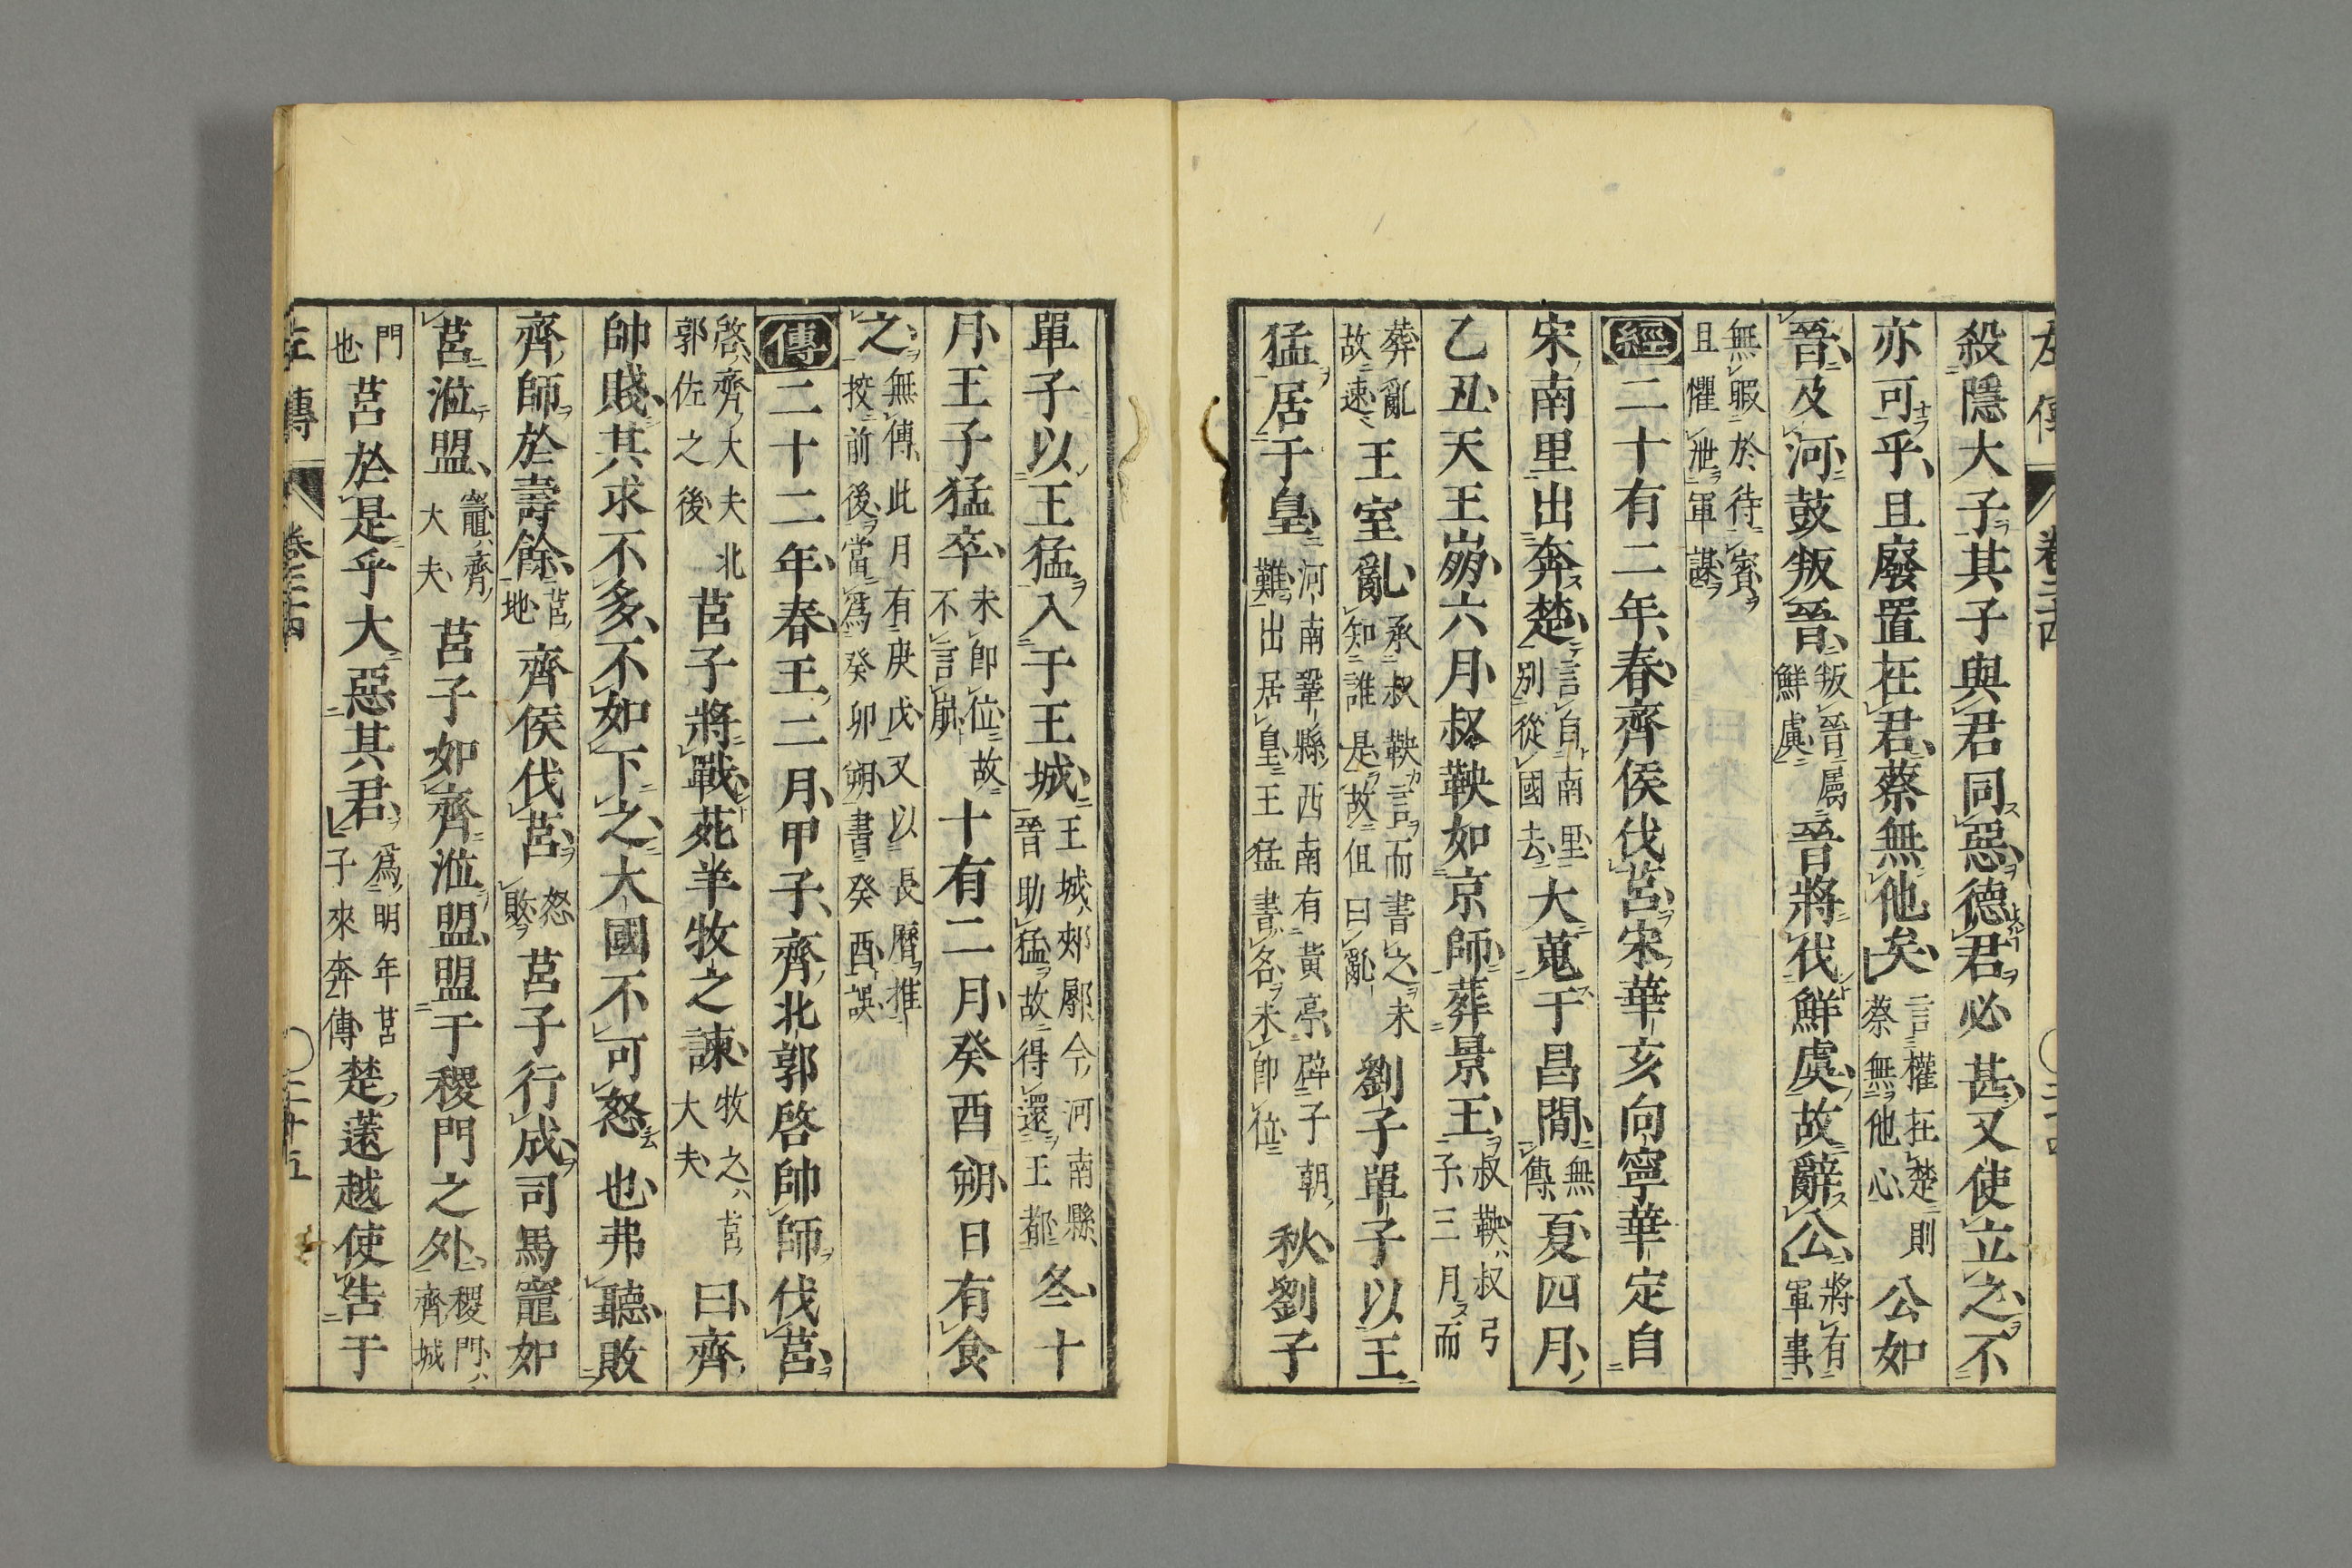 左傳 卷二十四 〇二十四
殺隱大子其子與君同惡德君必甚又使立之不
亦可乎且廢置在君蔡無他矣言權在楚則蔡無他心公如
晉及河鼓叛晉叛晉屬鮮虞晉將伐鮮虞故辭公將有軍事
無暇於待賓且懼泄軍謀
經二十有二年春齊侯伐莒宋華亥向寧華定自
宋南里出奔楚言自南里別從國去大蒐于昌閒無傳夏四月
乙丑天王崩六月叔鞅如京師葬景王叔鞅叔弓子三月而
葬亂故速王室亂承叔鞅言而書之未知誰是故但曰亂劉子單子以王
猛居于皇河南鞏縣西南有黃亭辟子朝難出居皇王猛書名未卽位秋劉子
單子以王猛入于王城王城郟鄏今河南縣晉助猛故得還王都冬十
月王子猛卒未卽位故不言崩十有二月癸酉朔日有食
之無傳此月有庚戌又以長曆推挍前後當爲癸卯朔書癸酉誤
傳二十二年春王二月甲子齊北郭啓帥師伐莒
啓齊大夫北郭佐之後莒子將戰苑羊牧之諫牧之莒大夫曰齊
帥賤其求不多不如下之大國不可怒也弗聽敗
齊師於壽餘莒地齊侯伐莒怒敗莒子行成司馬竈如
莒涖盟竈齊大夫莒子如齊涖盟盟于稷門之外稷門齊城
門也莒於是乎大惡其君爲明年莒子來奔傳楚薳越使告于
左傳 卷二十四 〇二十五